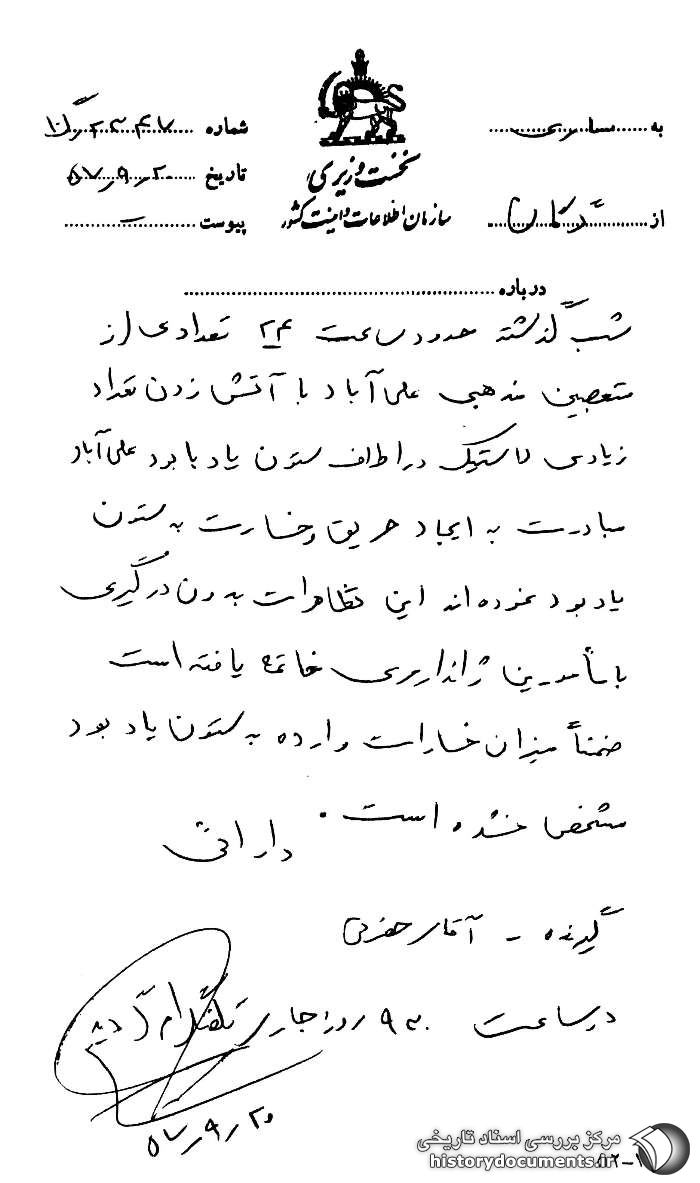 به ..... ساری
شماره ..... ۲۲۴۷
نخست وزیری
تاریخ ..... ۵۷٫۹٫۲۰
از ..... گرگان
سازمان اطلاعات و امنیت کشور
پیوست .....
درباره .....
شب گذشته حدود ساعت ۲۴ تعدادی از
متعصبین مذهبی علی آباد با آتش زدن تعداد
زیادی لاستیک در اطراف ستون یادبابود علی آباد
مبادرت به ایجاد حریق و خسارت به ستون
یادبود نموده اند این تظاهرات بدون درگیری
با مأمورین ژاندارمری خاتمه یافته است
ضمناً میزان خسارات وارده به ستون یادبود
مشخص نشده است . دارائی
گیرنده - آقای
در ساعت ۹۳۰ روز جاری تلفنگرام گردید
۵۷٫۹٫۲۰
مرکز بررسی اسناد تاریخی
historydocuments.ir